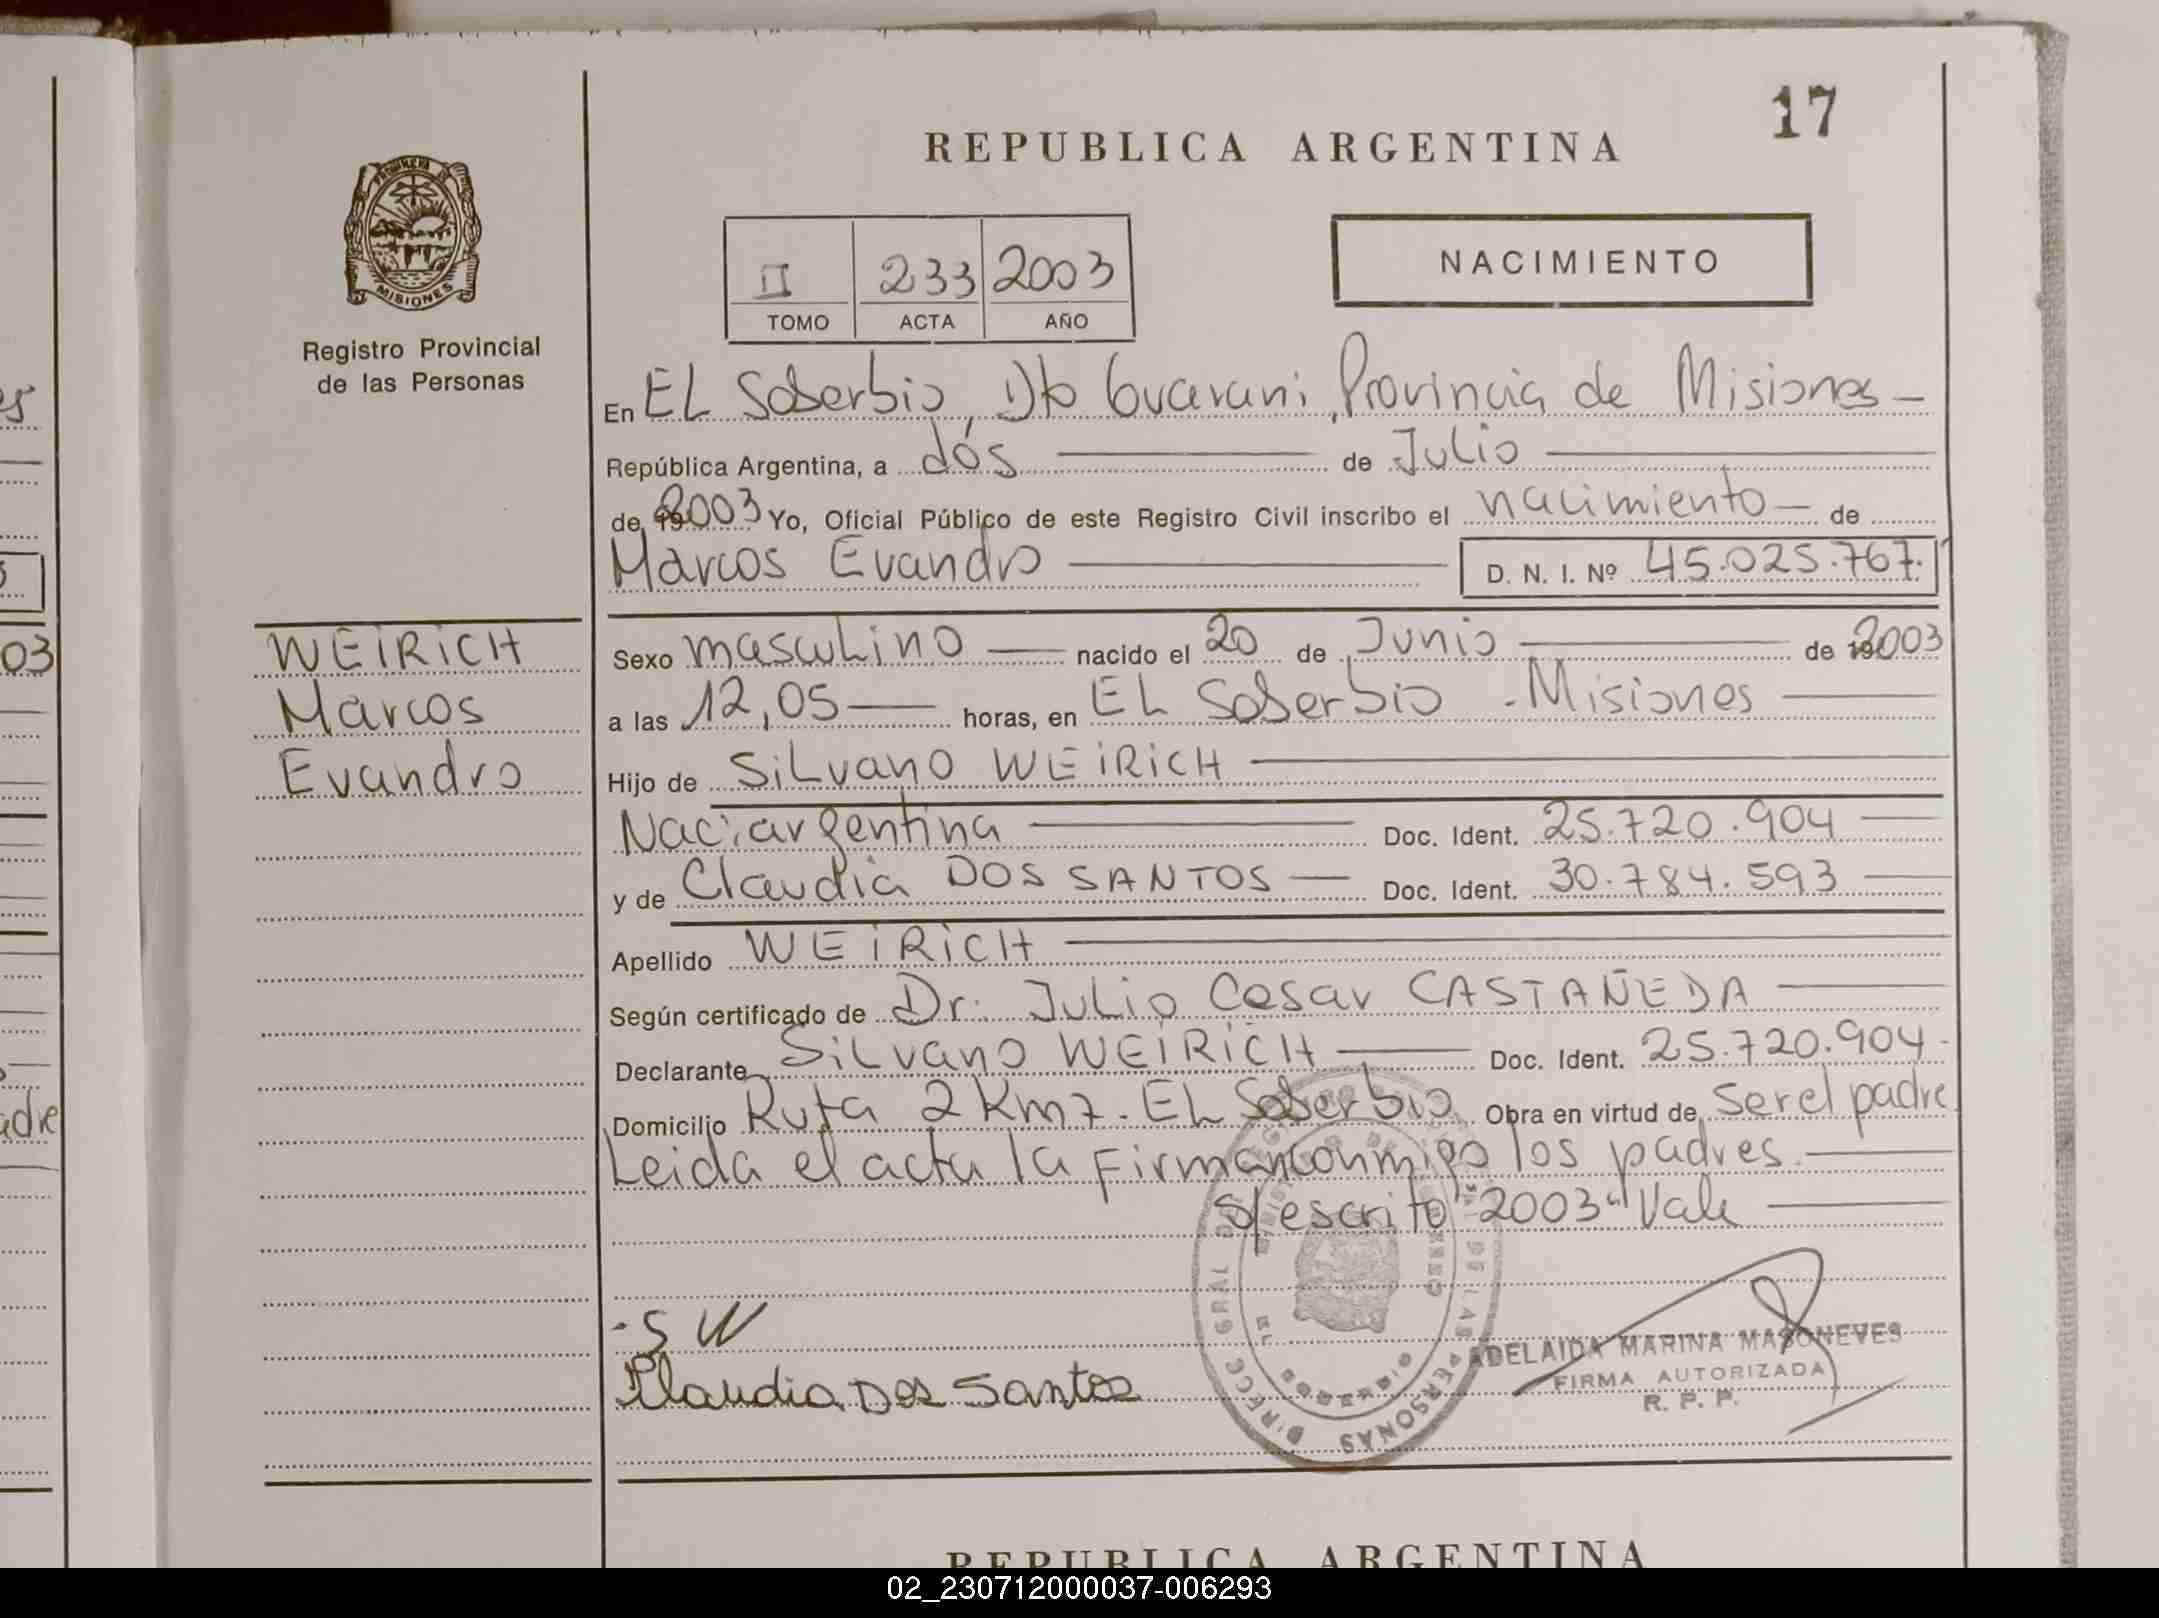 17
REPUBLICA ARGENTINA
PROVINCIA DE
MISIONES
Registro Provincial
de las Personas
II 233 2003
TOMO ACTA AÑO
NACIMIENTO
En EL Soberbio, Dto Guarani, Provincia de Misiones -
República Argentina, a dós de Julio
de 192003 Yo, Oficial Público de este Registro Civil inscribo el nacimiento de
Marcos Evandro D. N. I. Nº 45.025.767.
WEIRICH
Marcos
Evandro
Sexo masculino nacido el 20 de Junio de 192003
a las 12,05 horas, en EL Soberbio - Misiones
Hijo de Silvano WEIRICH
Nac: argentina Doc. Ident. 25.720.904
y de Claudia DOS SANTOS Doc. Ident. 30.784.593
Apellido WEIRICH
Según certificado de Dr. Julio Cesar CASTAÑEDA
Declarante Silvano WEIRICH Doc. Ident. 25.720.904 -
Domicilio Ruta 2 Km 7. EL Soberbio Obra en virtud de ser el padre
Leida el acta la Firman conmigo los padres.
S/escrito "2003" Vale
- S W
Claudia Dos Santos
ADELAIDA MARINA MASONEVES
FIRMA AUTORIZADA
R. P. P.
REPUBLICA ARGENTINA
02_230712000037-006293